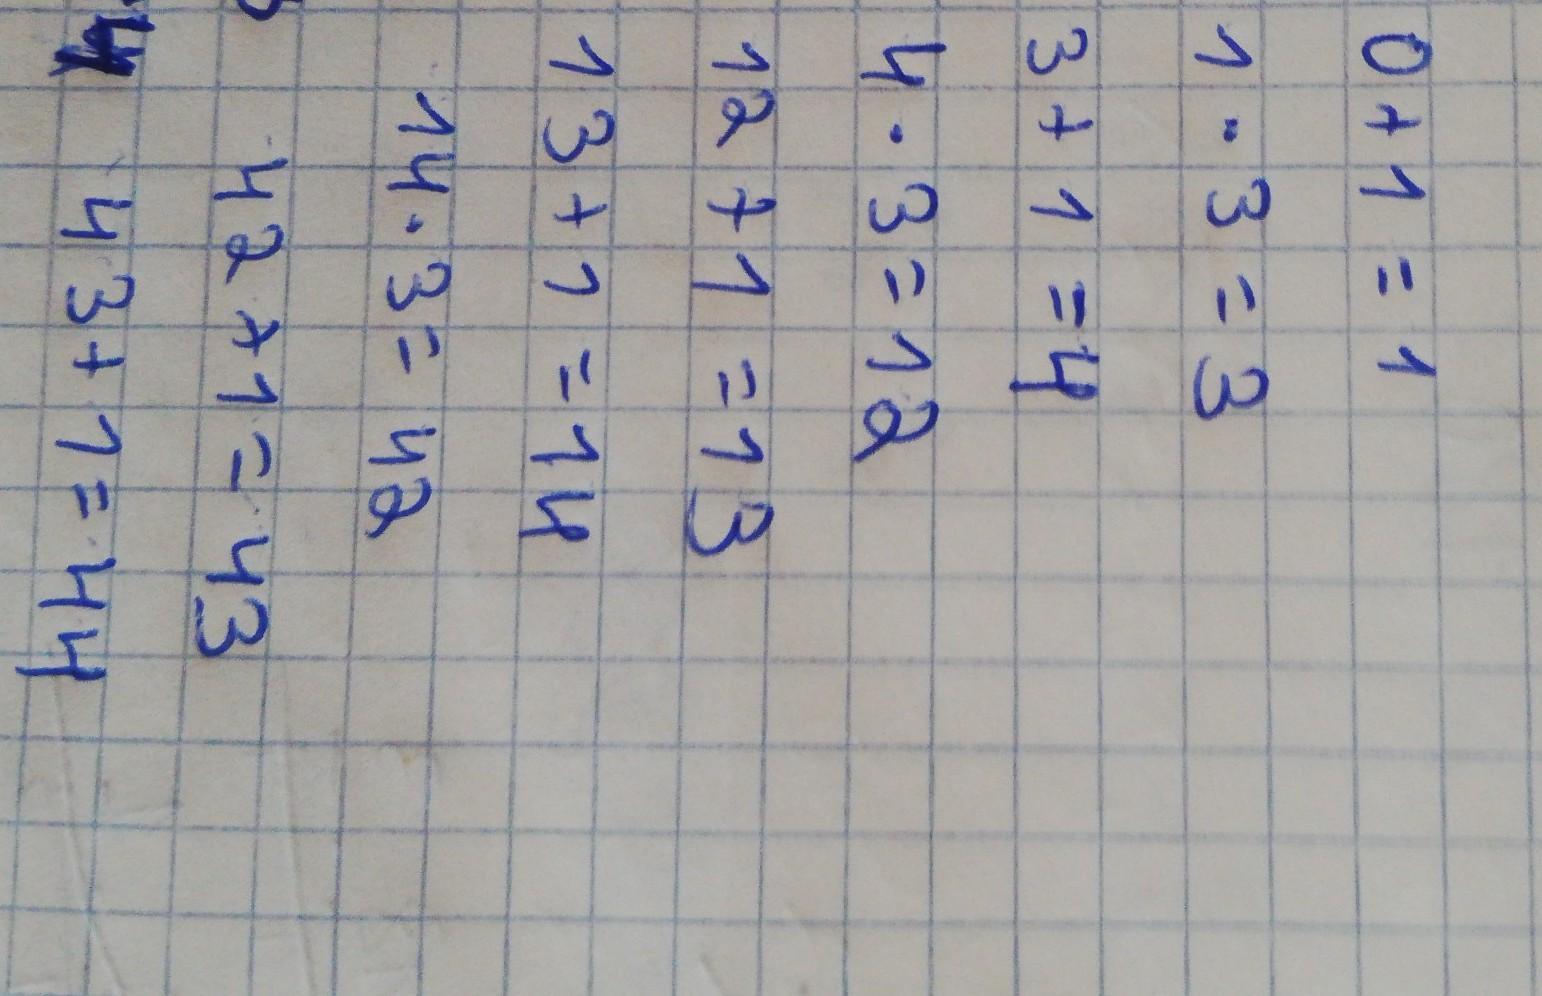 0+1=1
1·3=3
3+1=4
4·3=12
12+1=13
13+1=14
14·3=42
42+1=43
43+1=44